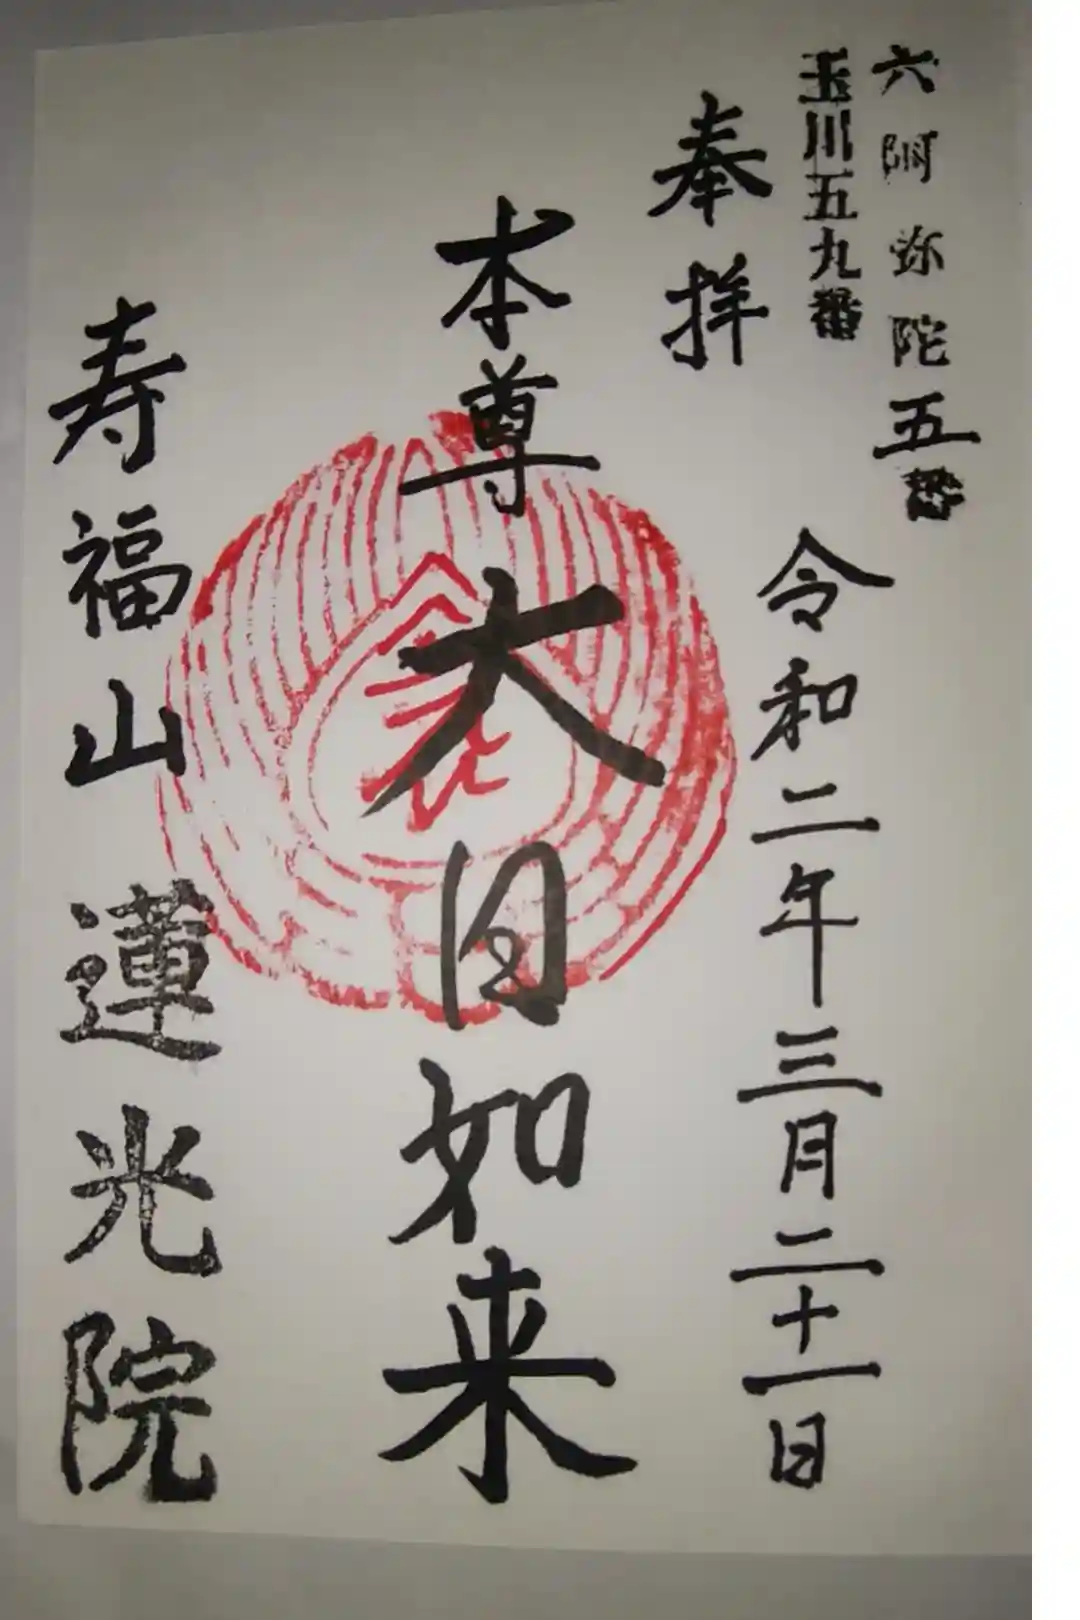 六阿弥陀五番
玉川五九番
奉拝
令和二年三月二十一日
本尊大日如来
寿福山蓮光院